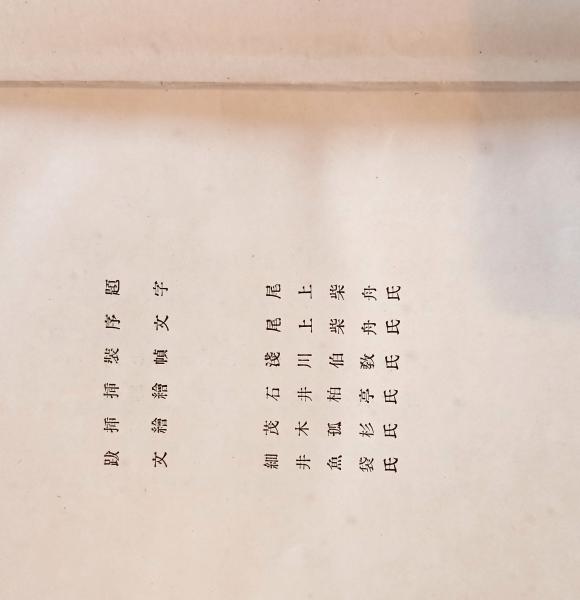 題字 尾上柴舟氏
序文 尾上柴舟氏
裝幀 淺川伯敎氏
挿繪 石井柏亭氏
挿繪 茂木孤杉氏
跋文 細井魚袋氏